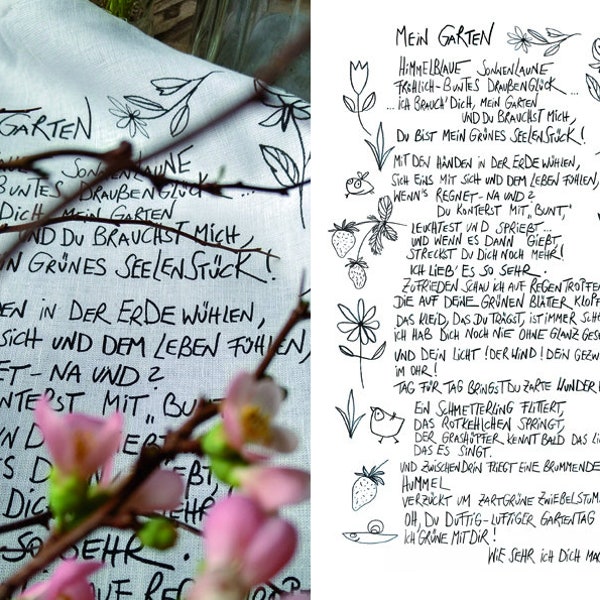 GARTEN
SONNENLAUNE
BUNTES DRAUßENGLÜCK ...
DICH, MEIN GARTEN
UND DU BRAUCHST MICH,
GRÜNES SEELENSTÜCK!
IN DER ERDE WÜHLEN,
SICH UND DEM LEBEN FÜHLEN,
NA UND?
MIT „BUNT
DICH
SEHR.
AUF
MEIN GARTEN
HIMMELBLAUE SONNENLAUNE
FRÖHLICH-BUNTES DRAUßENGLÜCK ...
... ICH BRAUCH' DICH, MEIN GARTEN
UND DU BRAUCHST MICH,
DU BIST MEIN GRÜNES SEELENSTÜCK!
MIT DEN HÄNDEN IN DER ERDE WÜHLEN,
SICH EINS MIT SICH UND DEM LEBEN FÜHLEN,
WENN'S REGNET - NA UND?
DU KONTERST MIT „BUNT",
LEUCHTEST UND SPRIEßT...
UND WENN ES DANN GIEßT,
STRECKST DU DICH NOCH MEHR!
ICH LIEB' ES SO SEHR.
ZUFRIEDEN SCHAU ICH AUF REGENTROPFEN
DIE AUF DEINE GRÜNEN BLÄTTER KLOPF
DAS KLEID, DAS DU TRÄGST, IST IMMER
ICH HAB DICH NOCH NIE OHNE GLANZ
UND DEIN LICHT! DER WIND! DEIN
IM OHR!
TAG FÜR TAG BRINGST DU ZARTE WUNDER
EIN SCHMETTERLING FLITTERT,
DAS ROTKEHLCHEN SPRINGT,
DER GRASHÜPFER KENNT BALD DAS
DAS ES SINGT.
UND ZWISCHENDRIN FLIEGT EINE BRUMMENDE
HUMMEL
VERZÜCKT UM ZARTGRÜNE
OH, DU DUFTIG-LUFTIGER GARTENTAG
ICH GRÜNE MIT DIR!
WIE SEHR ICH DICH MAG